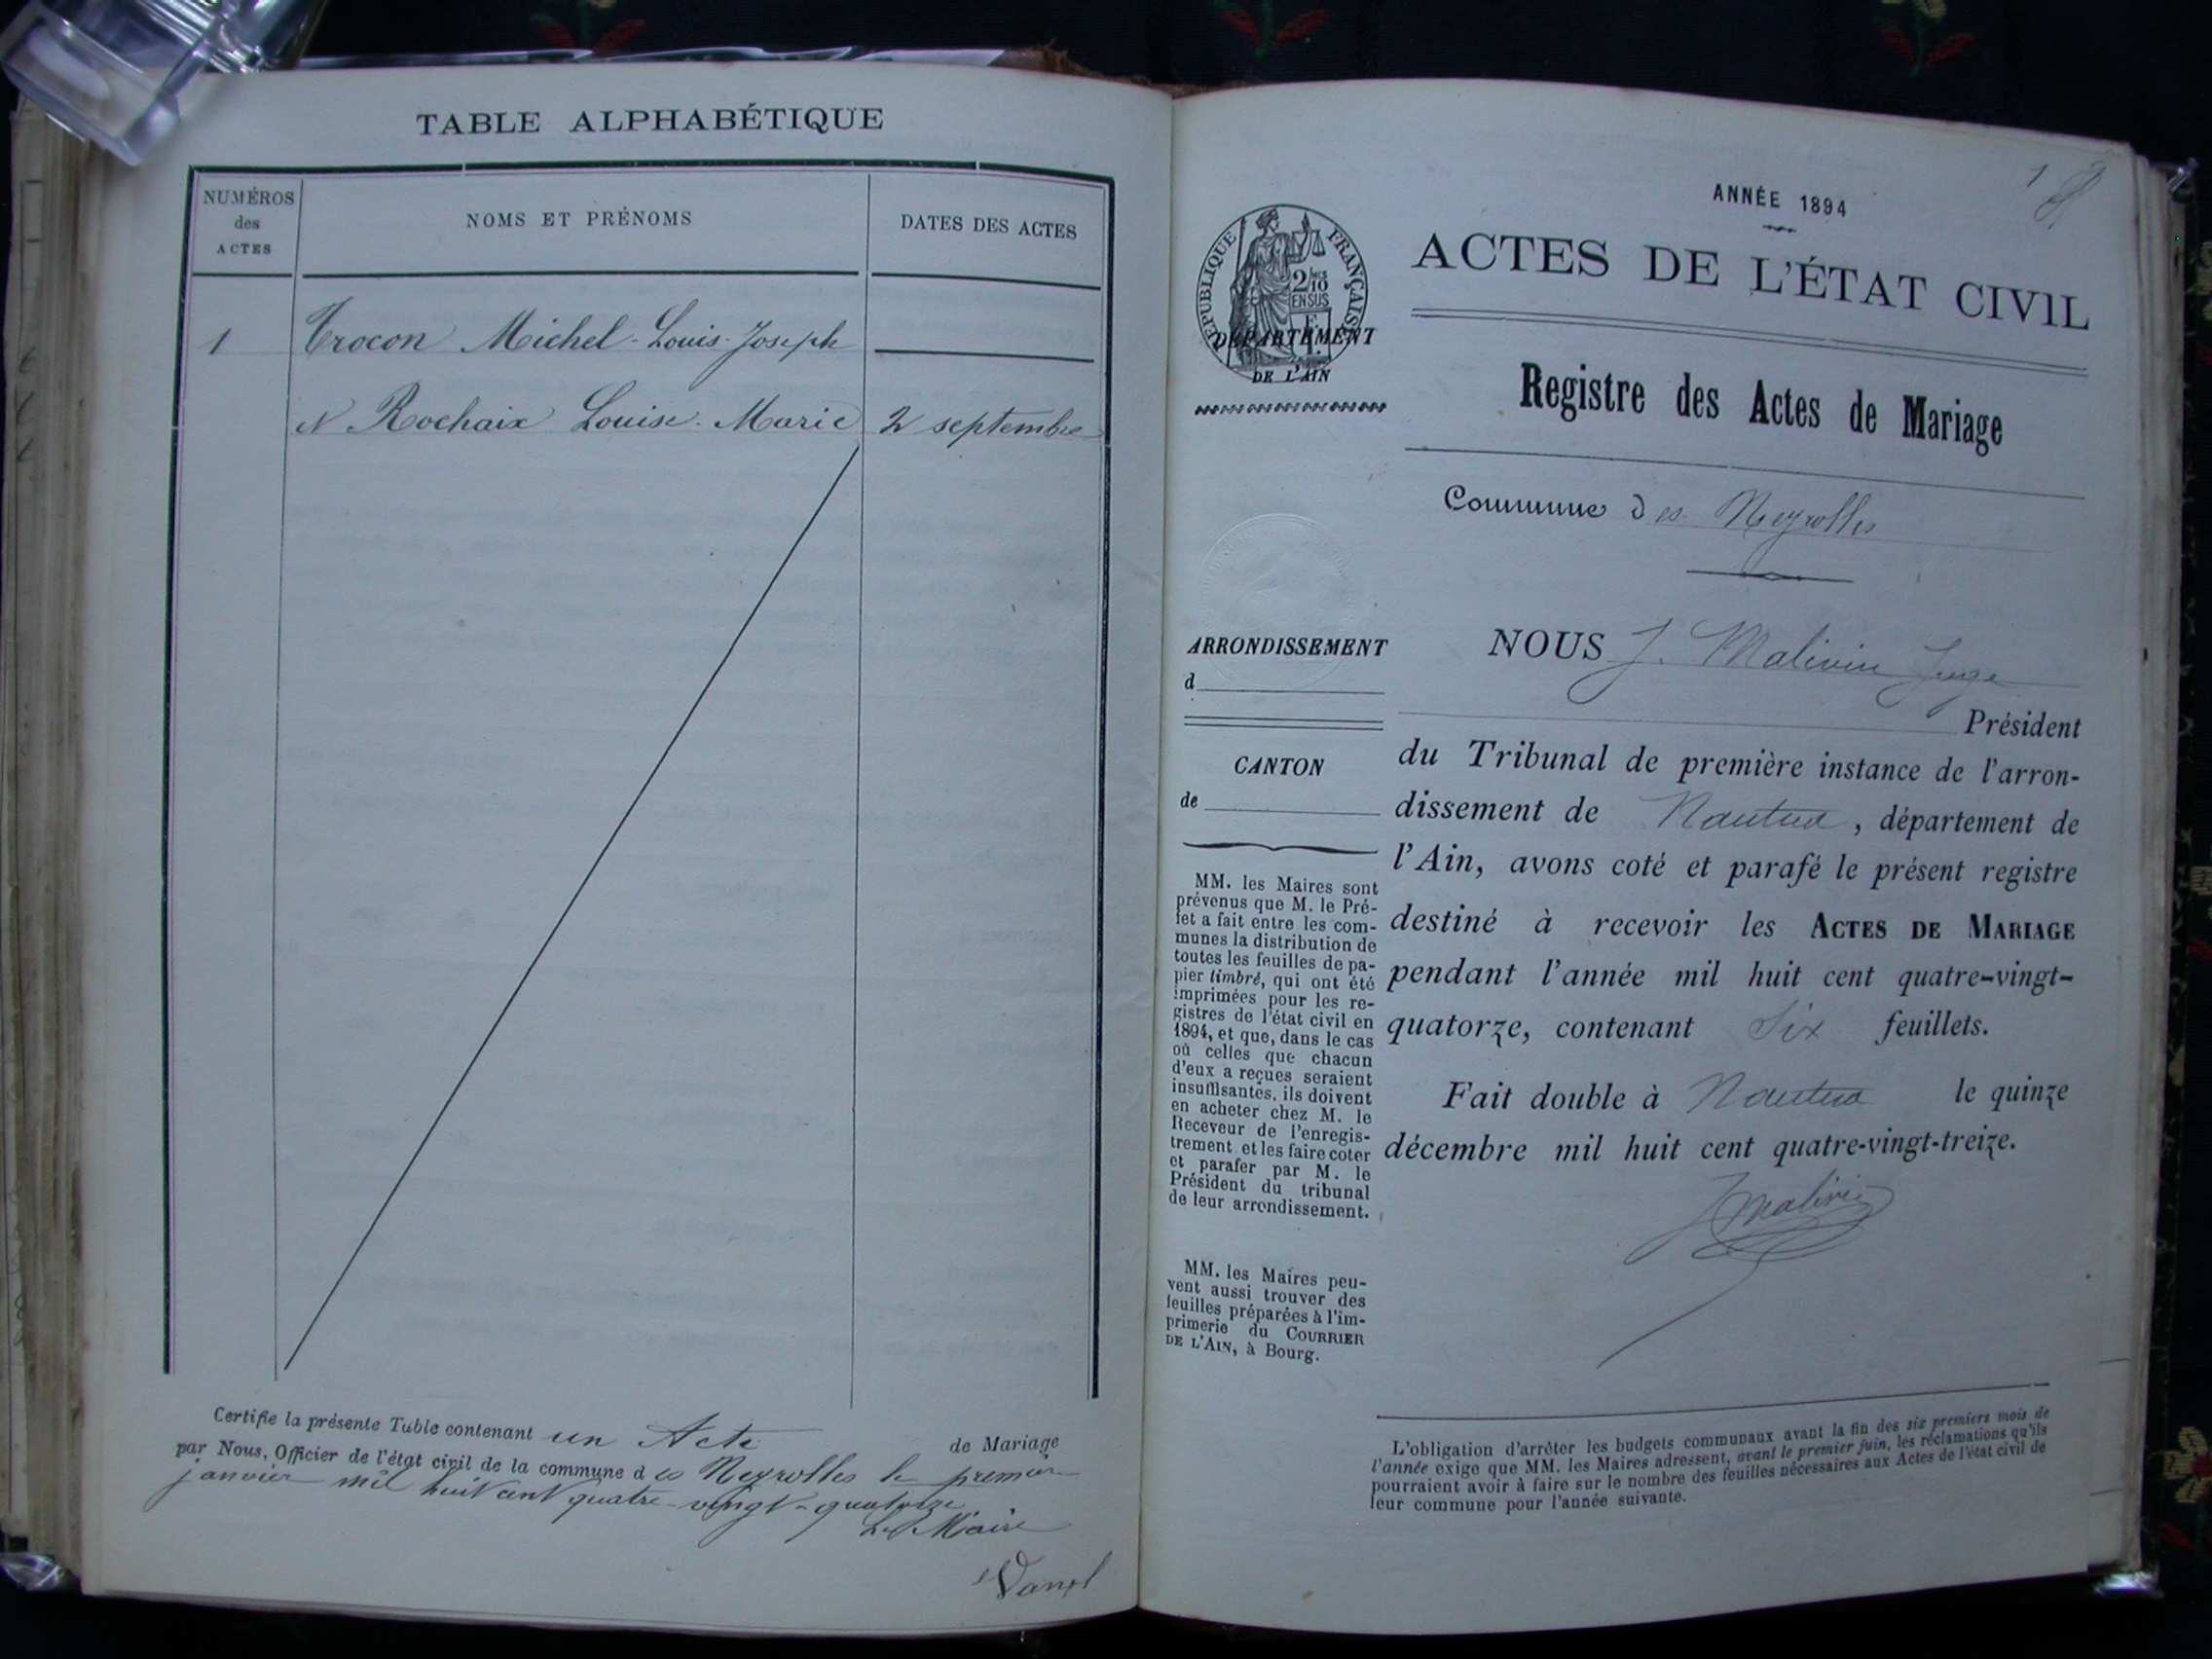 TABLE ALPHABÉTIQUE
NUMÉROS
des
ACTES
NOMS ET PRÉNOMS
DATES DES ACTES
1 Trocon Michel-Louis-Joseph
Rochaix Louise-Marie 2 septembre
Certifie la présente Table contenant un Acte de Mariage
par Nous, Officier de l'état civil de la commune d es Neyrolles le premier
janvier mil huit cent quatre-vingt-quatorze
Le Maire
1
ANNÉE 1894
ACTES DE L'ÉTAT CIVIL
RÉPUBLIQUE FRANÇAISE
2 10
EN SUS
DÉPARTEMENT
DE L'AIN
Registre des Actes de Mariage
Commune des Neyrolles
ARRONDISSEMENT
d
CANTON
de
MM. les Maires sont
prévenus que M. le Pré-
fet a fait entre les com-
munes la distribution de
toutes les feuilles de pa-
pier timbré, qui ont été
imprimées pour les re-
gistres de l'état civil en
1894, et que, dans le cas
où celles que chacun
d'eux a reçues seraient
insuffisantes, ils doivent
en acheter chez M. le
Receveur de l'enregis-
trement et les faire coter
et parafer par M. le
Président du tribunal
de leur arrondissement.
MM. les Maires peu-
vent aussi trouver des
feuilles préparées à l'im-
primerie du COURRIER
DE L'AIN, à Bourg.
NOUS J. Malivin Juge
Président
du Tribunal de première instance de l'arron-
dissement de Nantua, département de
l'Ain, avons coté et parafé le présent registre
destiné à recevoir les ACTES DE MARIAGE
pendant l'année mil huit cent quatre-vingt-
quatorze, contenant Six feuillets.
Fait double à Nantua le quinze
décembre mil huit cent quatre-vingt-treize.
J Malivin
L'obligation d'arrêter les budgets communaux avant la fin des six premiers mois de
l'année exige que MM. les Maires adressent, avant le premier juin, les réclamations qu'ils
pourraient avoir à faire sur le nombre des feuilles nécessaires aux Actes de l'état civil de
leur commune pour l'année suivante.